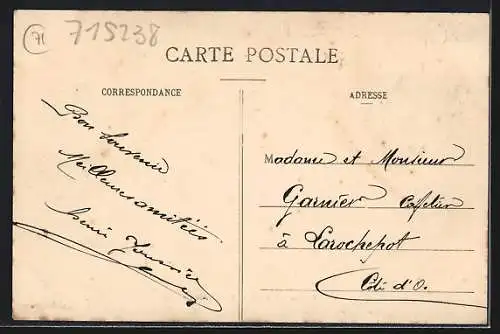 71
715238
CARTE POSTALE
CORRESPONDANCE
Bon Souvenir
Meilleures amitiés
ADRESSE
Madame et Monsieur
Garnier Cafetier
à Larochepot
Côte d'O.